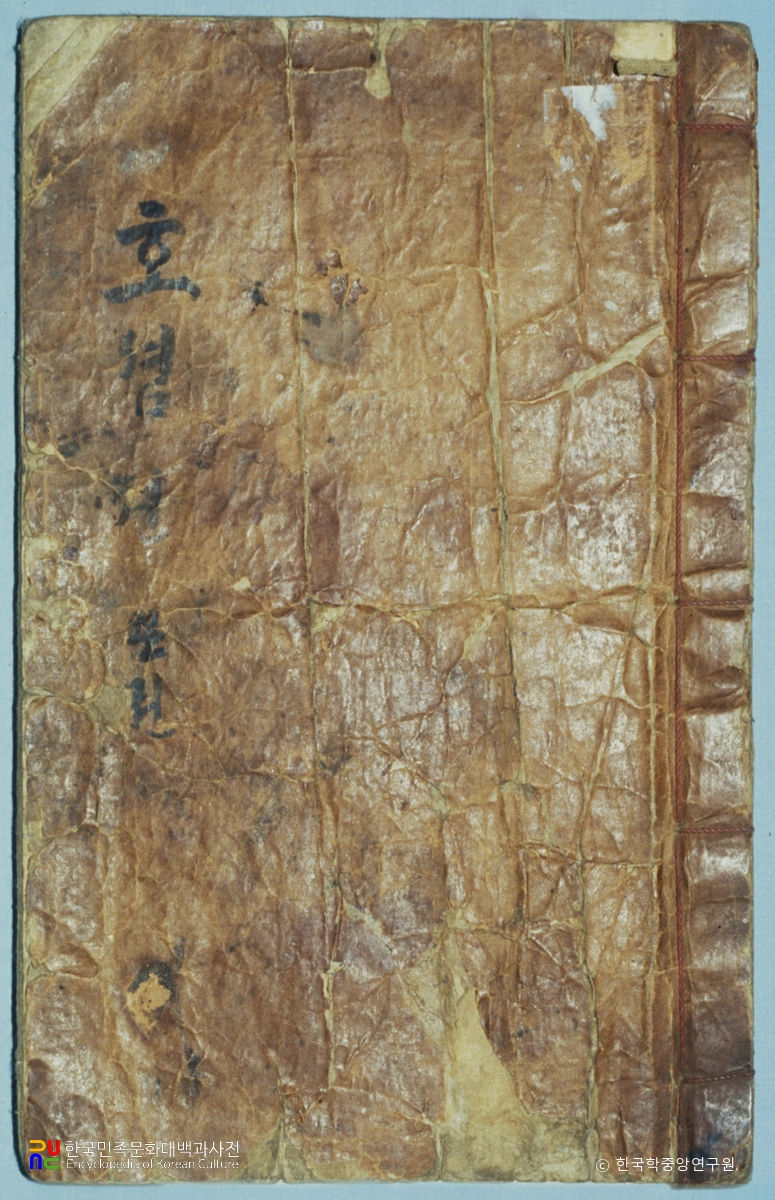 호셤젼 권
한국민족문화대백과사전
Encyclopedia of Korean Culture
© 한국학중앙연구원.